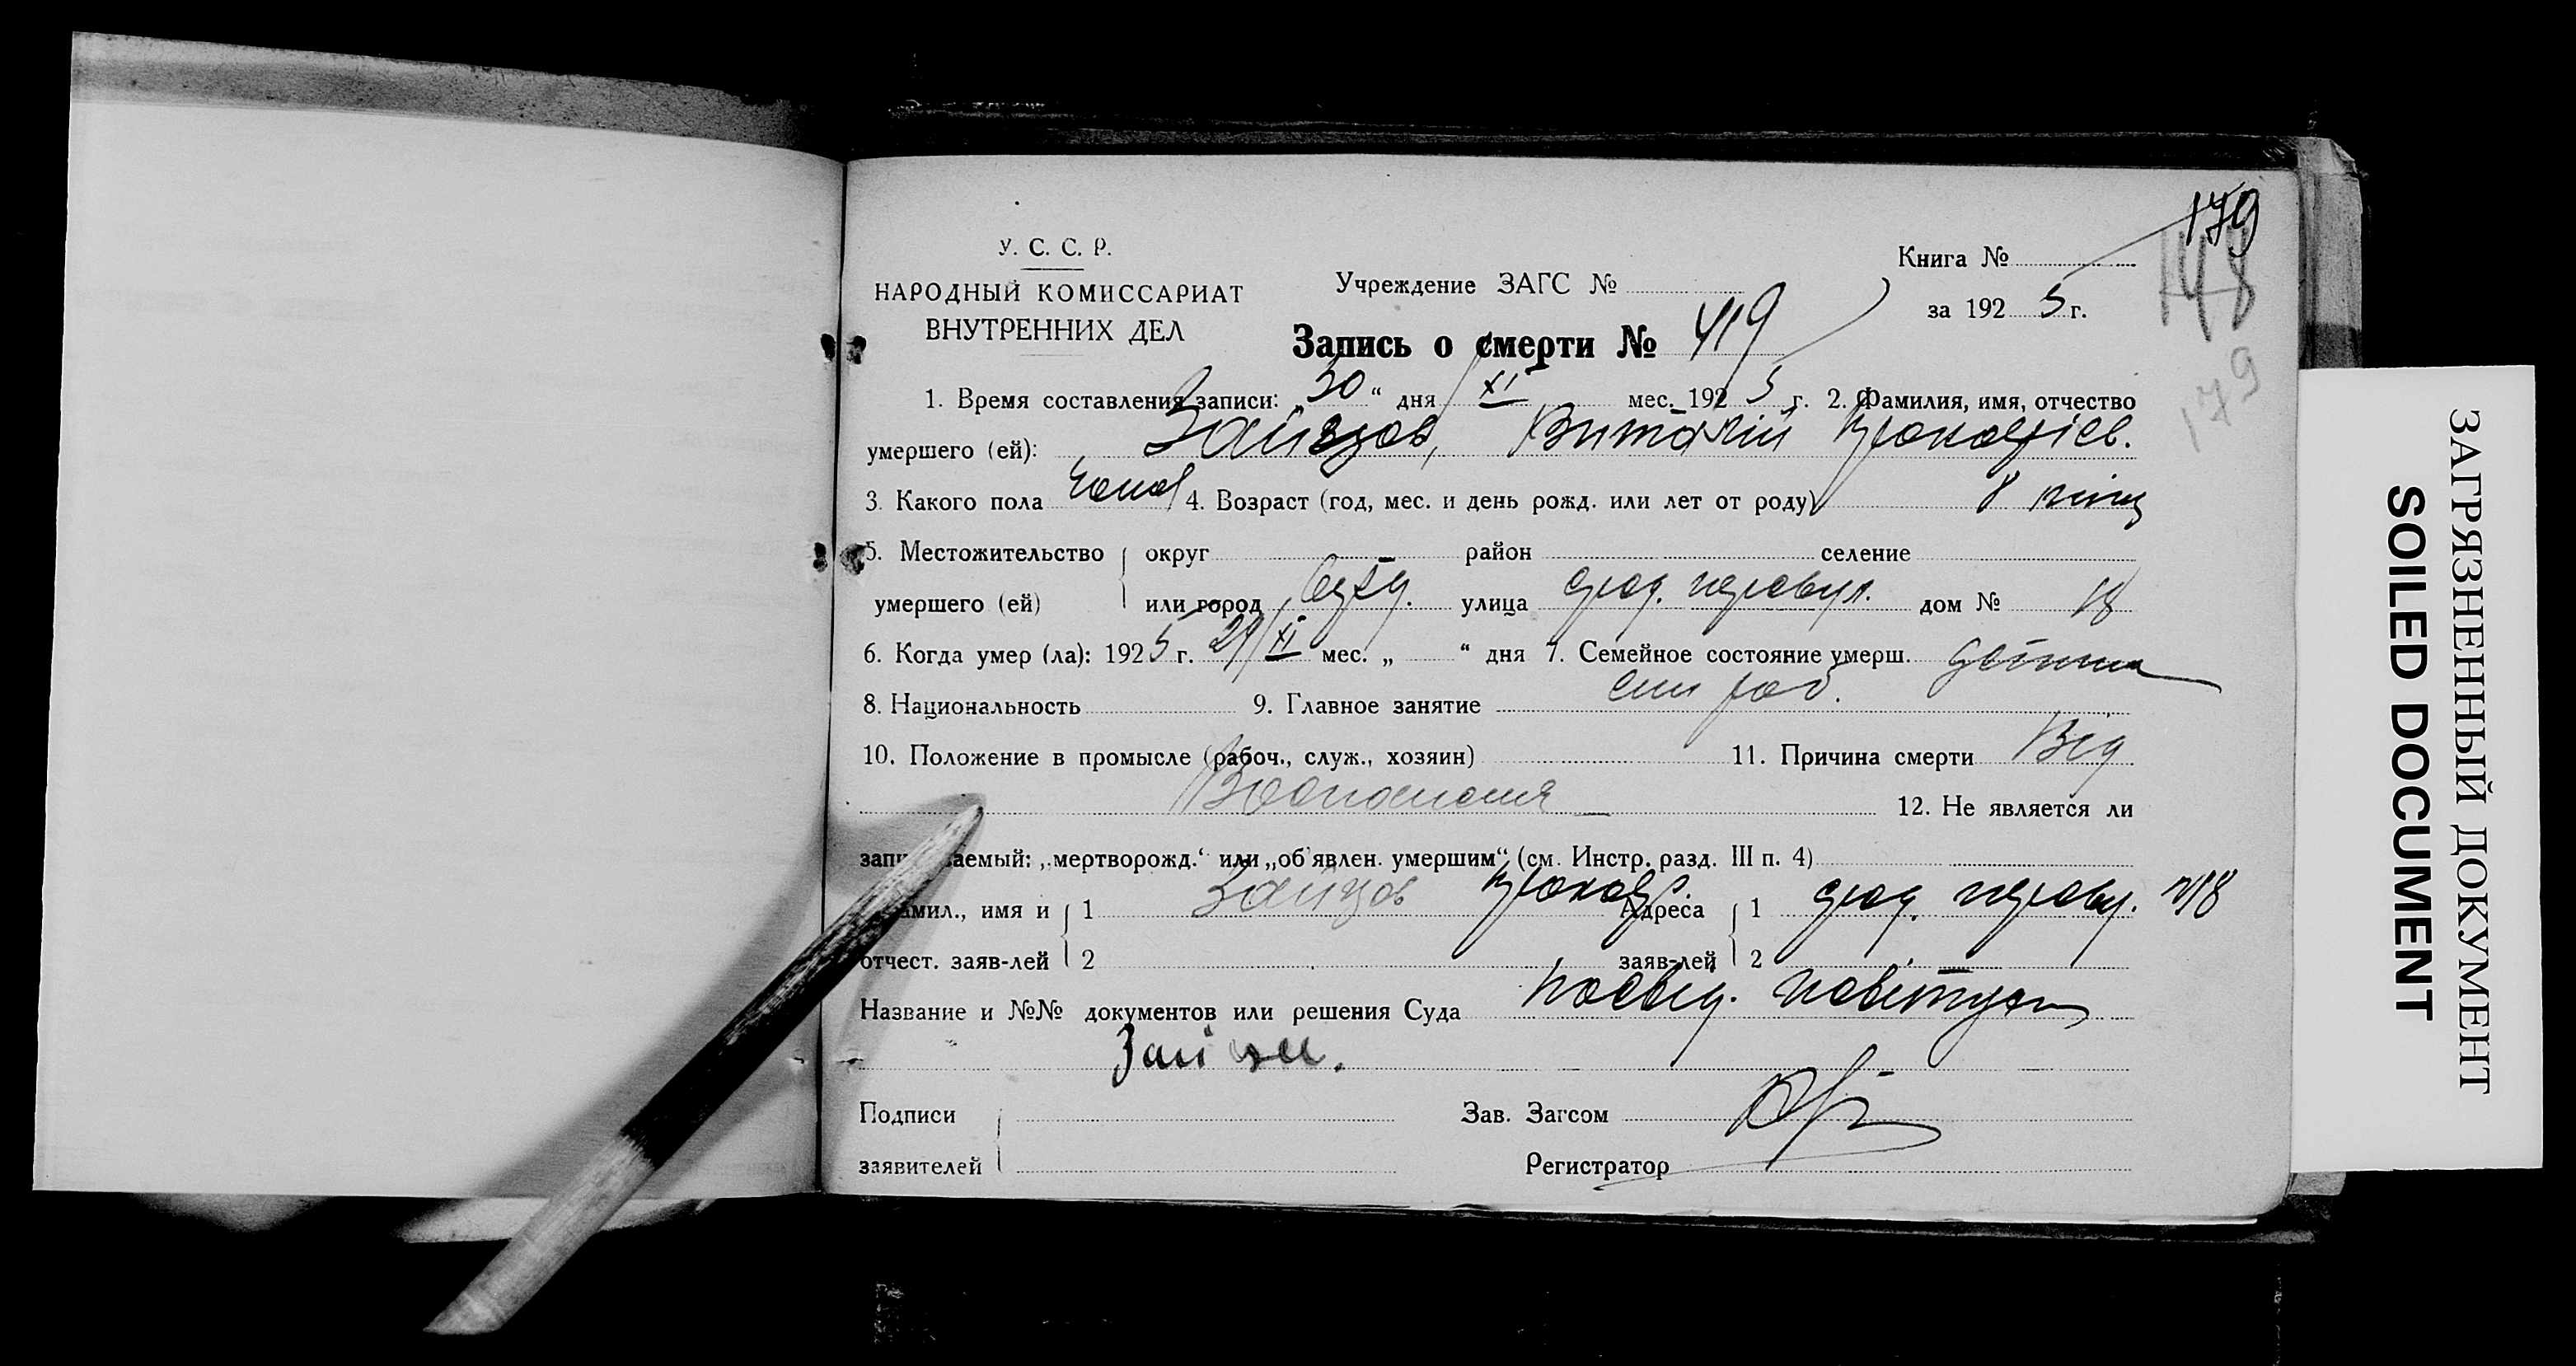 179
148
179
У. С. С. Р.
НАРОДНЫЙ КОМИССАРИАТ
ВНУТРЕННИХ ДЕЛ
Учреждение ЗАГС №
Книга №
за 1925 г.
Запись о смерти № 419
1. Время составления записи: „30“ дня XI мес. 1925 г. 2. Фамилия, имя, отчество
умершего (ей): Зайцов, Виталій Прокофіев.
3. Какого пола чолов 4. Возраст (год, мес. и день рожд. или лет от роду) 8 місяц
5. Местожительство округ район селение
умершего (ей) или город улица переул. дом № 18
6. Когда умер (ла): 1925 г. 29/XI мес. „ “ дня 7. Семейное состояние умерш. дитина
8. Национальность 9. Главное занятие син роб.
10. Положение в промысле (рабоч., служ., хозяин) 11. Причина смерти Від
Воспаления 12. Не является ли
аемый: „мертворожд.“ или „об'явлен. умершим“ (см. Инстр. разд. III п. 4)
мил., имя и 1 Зайцов Прокоф. Адреса 1 переву. №18
отчест. заяв-лей 2 заяв-лей 2
Название и №№ документов или решения Суда посвід.
Подписи Зав. Загсом
заявителей Регистратор
ЗАГРЯЗНЕННЫЙ ДОКУМЕНТ
SOILED DOCUMENT